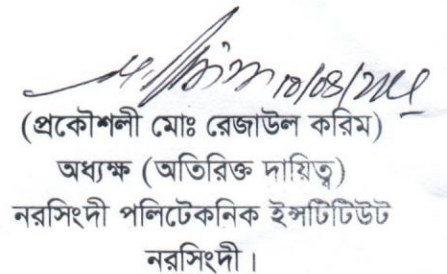 (প্রকৌশলী মোঃ রেজাউল করিম)
অধ্যক্ষ (অতিরিক্ত দায়িত্ব)
নরসিংদী পলিটেকনিক ইন্সটিটিউট
নরসিংদী।